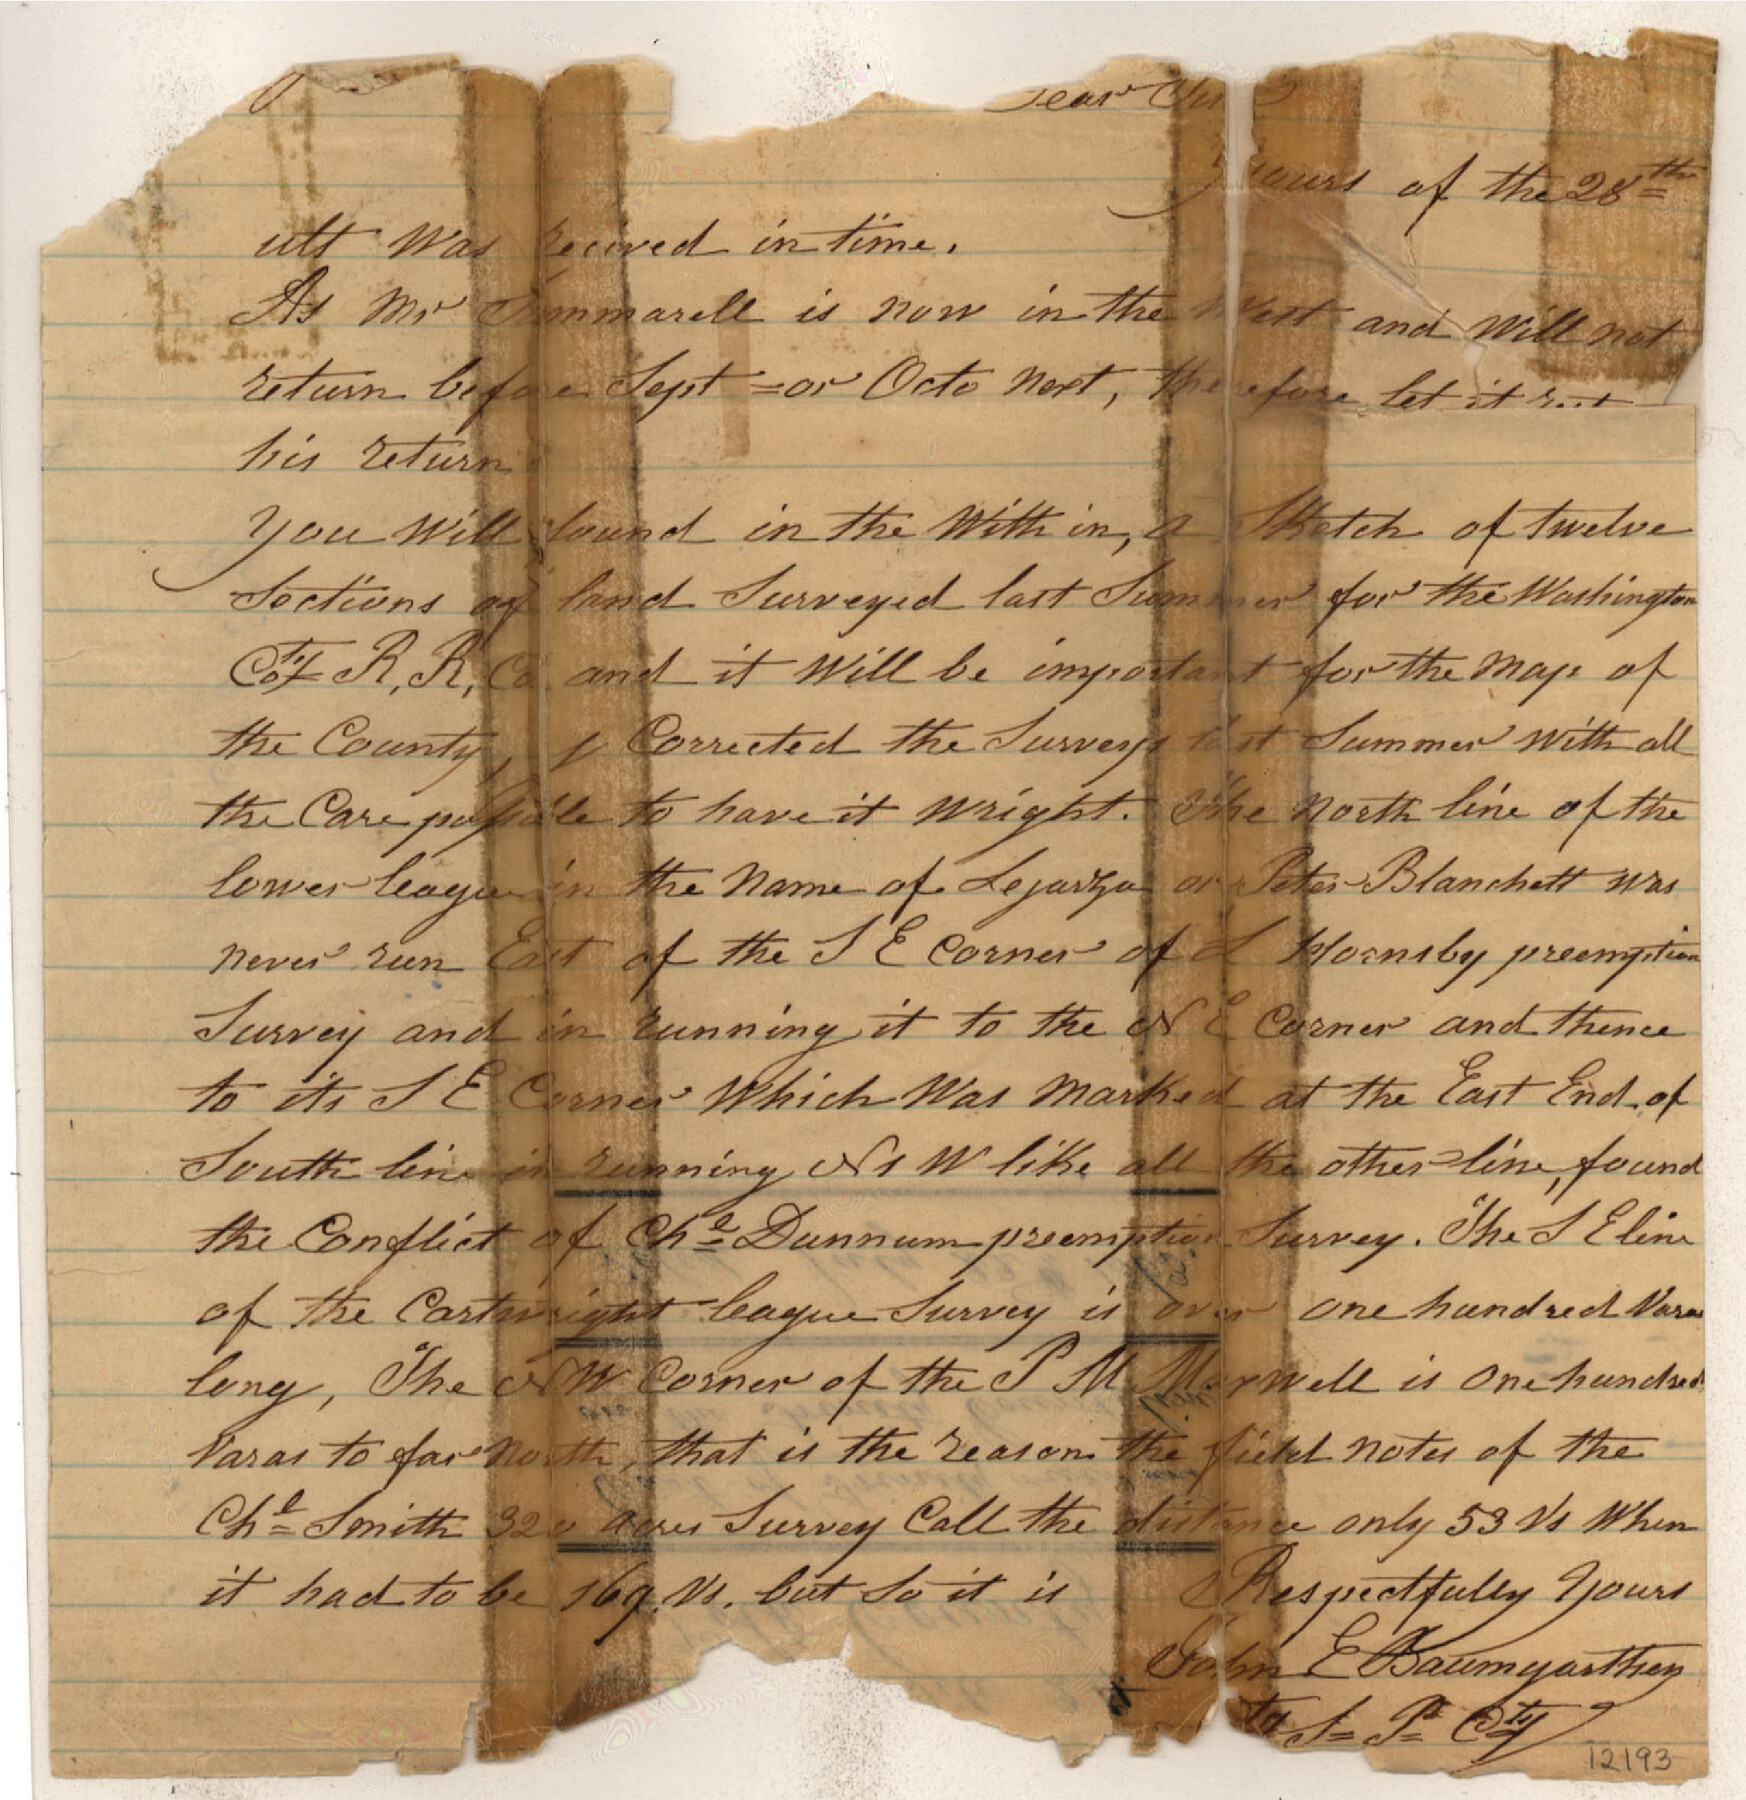 Dear Sir
Yours of the 28th
ult Was recived in time.
As Mr Trimmarell is now in the West and Will not
return before Sept = or Octo Next, therefore let it rest
his return
You Will found in the With in, a Sketch of twelve
Sections of land Surveyed last Summer for the Washington
Coty R, R, Co and it Will be important for the Map of
the County, I Corrected the Surveys last Summer With all
the Care possible to have it Wright. The North line of the
lower league in the Name of Lejarza or Peter Blanchett Was
never run East of the S E Corner of L Hornsby preemption
Survey and in running it to the N E Corner and thence
to its S E Corner Which Was Marked at the East End of
South line in running N S W like all the other line, found
the Conflict of Chs Dunnum preemption Survey. The S E line
of the Cartwright league Survey is over one hundred Varas
long, The N W Corner of the P M Maxwell is One hundred
Varas to far North, that is the reason the field Notes of the
Chs Smith 320 acres Survey Call the distance only 53 Vs When
it had to be 169. Vs. but So it is Respectfully Yours
John E Baumgarthen
S = P = Cty
12193